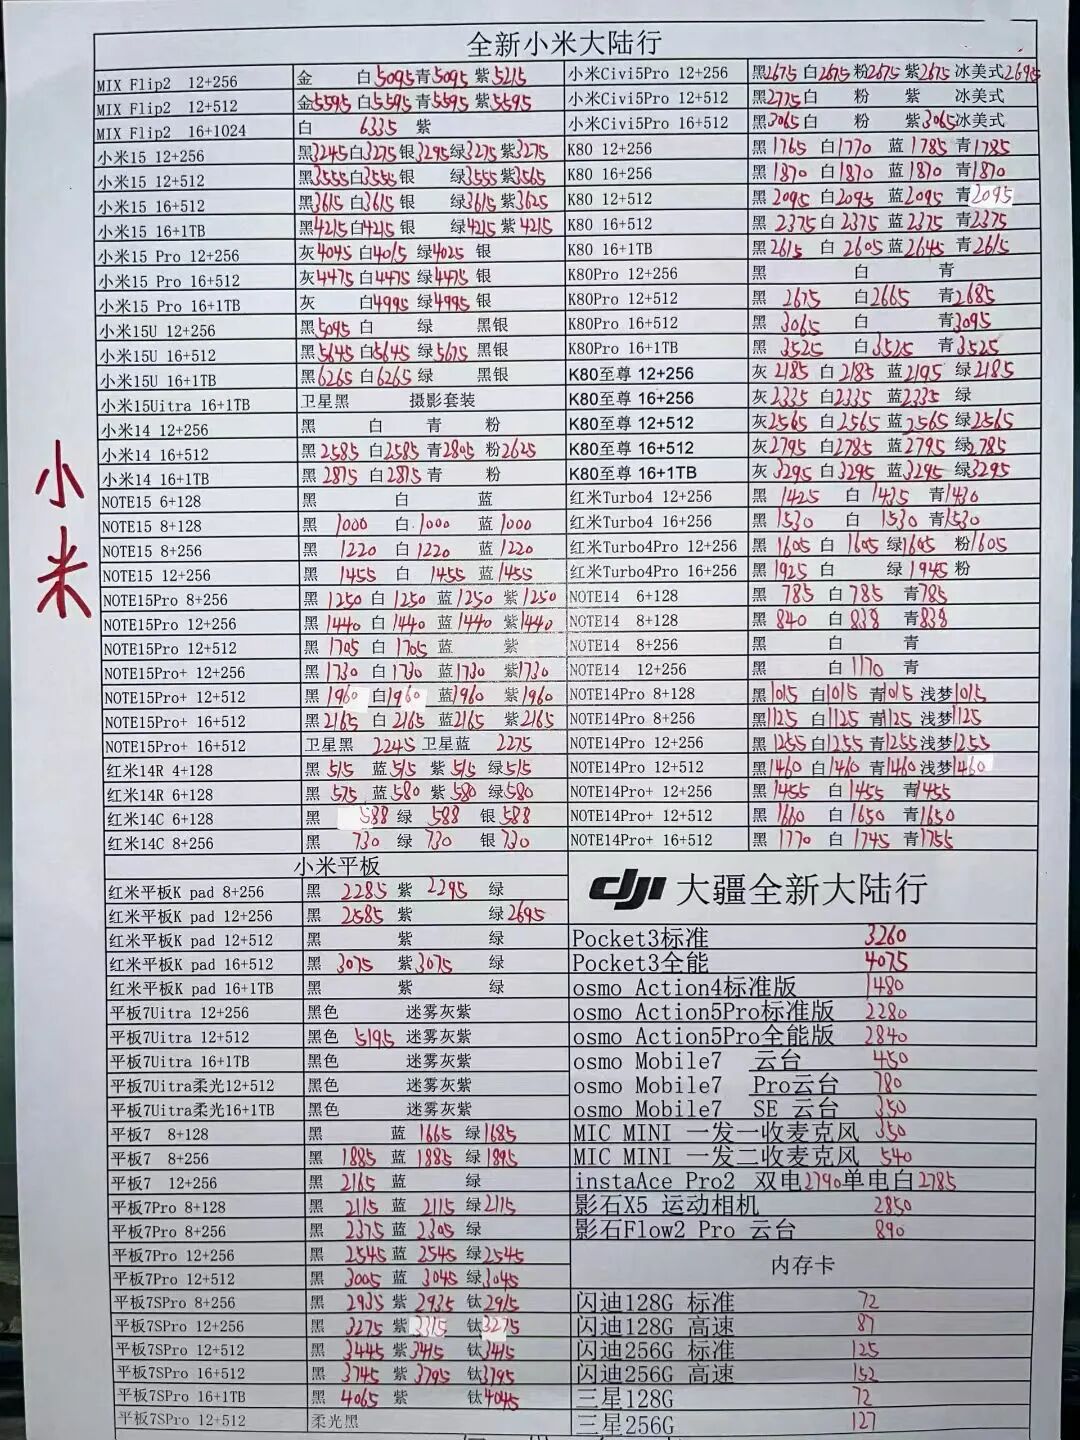 小米
全新小米大陆行
MIX Flip2 12+256 金 白5095青5095 紫5215
MIX Flip2 12+512 金5595白5595青5595 紫5595
MIX Flip2 16+1024 白 6335 紫
小米15 12+256 黑3245白3275银3295绿3275紫3275
小米15 12+512 黑3555白3555银 绿3555紫3565
小米15 16+512 黑3615白3615银 绿3615紫3625
小米15 16+1TB 黑4215白4215银 绿4215紫4215
小米15 Pro 12+256 灰4045白4015绿4025银
小米15 Pro 16+512 灰4475白4475绿4475银
小米15 Pro 16+1TB 灰 白4995绿4995银
小米15U 12+256 黑5095白 绿 黑银
小米15U 16+512 黑5645白5645绿5675黑银
小米15U 16+1TB 黑6265白6265绿 黑银
小米15Uitra 16+1TB 卫星黑 摄影套装
小米14 12+256 黑 白 青 粉
小米14 16+512 黑2585白2585青2805粉2625
小米14 16+1TB 黑2875白2875青 粉
NOTE15 6+128 黑 白 蓝
NOTE15 8+128 黑 1000 白 1000 蓝 1000
NOTE15 8+256 黑 1220 白 1220 蓝 1220
NOTE15 12+256 黑 1455 白 1455 蓝 1455
NOTE15Pro 8+256 黑 1250 白 1250 蓝1250 紫1250
NOTE15Pro 12+256 黑 1440 白 1440 蓝1440 紫1440
NOTE15Pro 12+512 黑 1705 白 1705 蓝 紫
NOTE15Pro+ 12+256 黑 1730 白 1730 蓝1730 紫1730
NOTE15Pro+ 12+512 黑 1960 白1960 蓝1960 紫1960
NOTE15Pro+ 16+512 黑 2165 白 2165 蓝2165 紫2165
NOTE15Pro+ 16+512 卫星黑 2245 卫星蓝 2275
红米14R 4+128 黑 515 蓝515 紫515 绿515
红米14R 6+128 黑 575 蓝580 紫580 绿580
红米14C 6+128 黑 588 绿 588 银588
红米14C 8+256 黑 730 绿 730 银730
小米Civi5Pro 12+256 黑2675白2675粉2675紫2675冰美式2695
小米Civi5Pro 12+512 黑2775白 粉 紫 冰美式
小米Civi5Pro 16+512 黑3065白 粉 紫3065冰美式
K80 12+256 黑 1765 白1770 蓝1785 青1785
K80 16+256 黑 1870 白1870 蓝1870 青1870
K80 12+512 黑 2095 白2095 蓝2095 青2095
K80 16+512 黑 2375 白2375 蓝2375 青2375
K80 16+1TB 黑 2615 白2605 蓝2645 青2615
K80Pro 12+256 黑 白 青
K80Pro 12+512 黑 2675 白2665 青2685
K80Pro 16+512 黑 3065 白 青3095
K80Pro 16+1TB 黑 3525 白3525 青3525
K80至尊 12+256 灰 2185 白2185 蓝2195 绿2185
K80至尊 16+256 灰2335 白2335 蓝2335 绿
K80至尊 12+512 灰2565 白2565 蓝2565 绿2565
K80至尊 16+512 灰2795 白2785 蓝2795 绿2785
K80至尊 16+1TB 灰3295 白3295 蓝3295 绿3295
红米Turbo4 12+256 黑 1425 白 1435 青1430
红米Turbo4 16+256 黑 1530 白 1530 青1530
红米Turbo4Pro 12+256 黑 1605 白 1605 绿1605 粉1605
红米Turbo4Pro 16+256 黑 1925 白 绿1945 粉
NOTE14 6+128 黑 785 白785 青785
NOTE14 8+128 黑 840 白 838 青838
NOTE14 8+256 黑 白 青
NOTE14 12+256 黑 白1170 青
NOTE14Pro 8+128 黑1015 白1015 青1015 浅梦1015
NOTE14Pro 8+256 黑1125 白1125 青1125 浅梦1125
NOTE14Pro 12+256 黑1255 白1255 青1255 浅梦1255
NOTE14Pro 12+512 黑1460 白1460 青1460 浅梦1460
NOTE14Pro+ 12+256 黑1455 白1455 青1455
NOTE14Pro+ 12+512 黑 1660 白 1650 青1650
NOTE14Pro+ 16+512 黑 1770 白 1745 青1755
小米平板
红米平板K pad 8+256 黑 2285 紫 2295 绿
红米平板K pad 12+256 黑 2585 紫 绿2695
红米平板K pad 12+512 黑 紫 绿
红米平板K pad 16+512 黑 3075 紫3075 绿
红米平板K pad 16+1TB 黑 紫 绿
平板7Uitra 12+256 黑色 迷雾灰紫
平板7Uitra 12+512 黑色 5195 迷雾灰紫
平板7Uitra 16+1TB 黑色 迷雾灰紫
平板7Uitra柔光12+512 黑色 迷雾灰紫
平板7Uitra柔光16+1TB 黑色 迷雾灰紫
平板7 8+128 黑 蓝 1665 绿1685
平板7 8+256 黑 1885 蓝 1885 绿1895
平板7 12+256 黑 2165 蓝 绿
平板7Pro 8+128 黑 2115 蓝 2115 绿2115
平板7Pro 8+256 黑 2375 蓝 2305 绿
平板7Pro 12+256 黑 2545 蓝 2545 绿2545
平板7Pro 12+512 黑 3005 蓝 3045 绿3045
平板7SPro 8+256 黑 2935 紫 2935 钛2915
平板7SPro 12+256 黑 3275 紫3315 钛3275
平板7SPro 12+512 黑 3445 紫3415 钛3415
平板7SPro 16+512 黑 3745 紫3795 钛3795
平板7SPro 16+1TB 黑 4065 紫 钛4045
平板7SPro 12+512 柔光黑
dji 大疆全新大陆行
Pocket3标准 3260
Pocket3全能 4075
osmo Action4标准版 1480
osmo Action5Pro标准版 2280
osmo Action5Pro全能版 2840
osmo Mobile7 云台 450
osmo Mobile7 Pro云台 780
osmo Mobile7 SE 云台 350
MIC MINI 一发一收麦克风 350
MIC MINI 一发二收麦克风 540
instaAce Pro2 双电2790单电白2785
影石X5 运动相机 2850
影石Flow2 Pro 云台 890
内存卡
闪迪128G 标准 72
闪迪128G 高速 87
闪迪256G 标准 125
闪迪256G 高速 152
三星128G 72
三星256G 127